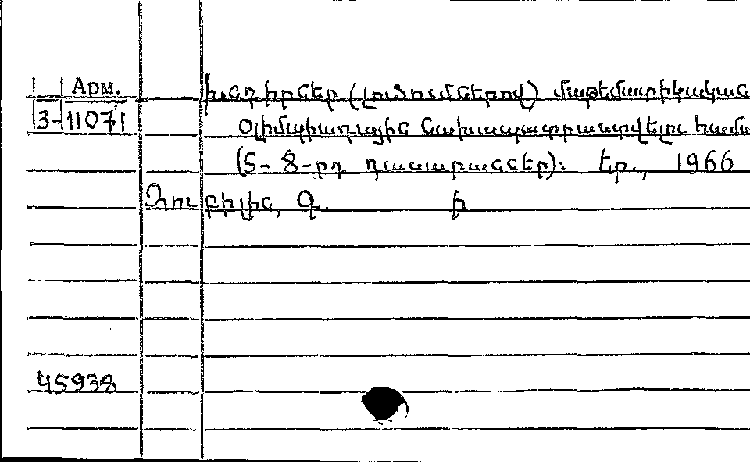 Арм.
3-11071
Խնդիրներ (լուծումներով) մաթեմատիկական
օլիմպիադային նախապատրաստվելու համա
(5-8-րդ դասարաններ): Եր., 1966
Զուբիլին, Գ. ի
45938